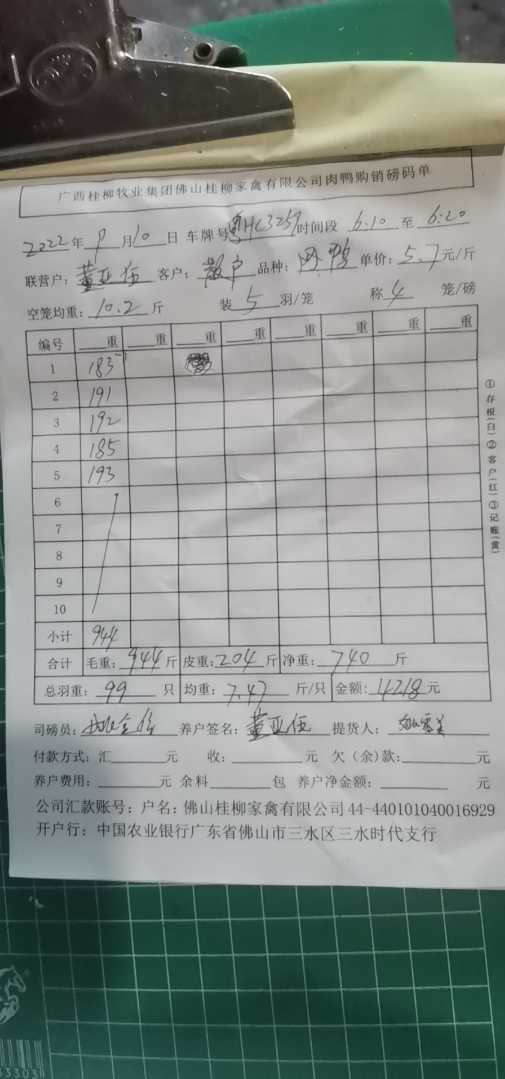 广西桂柳牧业集团佛山桂柳家禽有限公司肉鸭购销磅码单
2022年9月10日 车牌号粤HC3259时间段 6:10 至 6:20
联营户:董亚伍 客户:散户 品种:肉鸭 单价:5.7元/斤
空笼均重:10.2斤 装5羽/笼 称4笼/磅
编号 重 重 重 重 重 重 重 重
1 183
2 191
3 192
4 185
5 193
6
7
8
9
10
小计 944
合计 毛重:944斤 皮重:204斤 净重:740斤
总羽重:99只 均重:7.47斤/只 金额:4218元
司磅员: 养户签名:董亚伍 提货人:
付款方式:汇 元 收: 元 欠(余)款: 元
养户费用: 元 余料 包 养户净金额: 元
公司汇款账号:户名:佛山桂柳家禽有限公司44-440101040016929
开户行:中国农业银行广东省佛山市三水区三水时代支行
①存根(白)②客户(红)③记账(黄)
33303